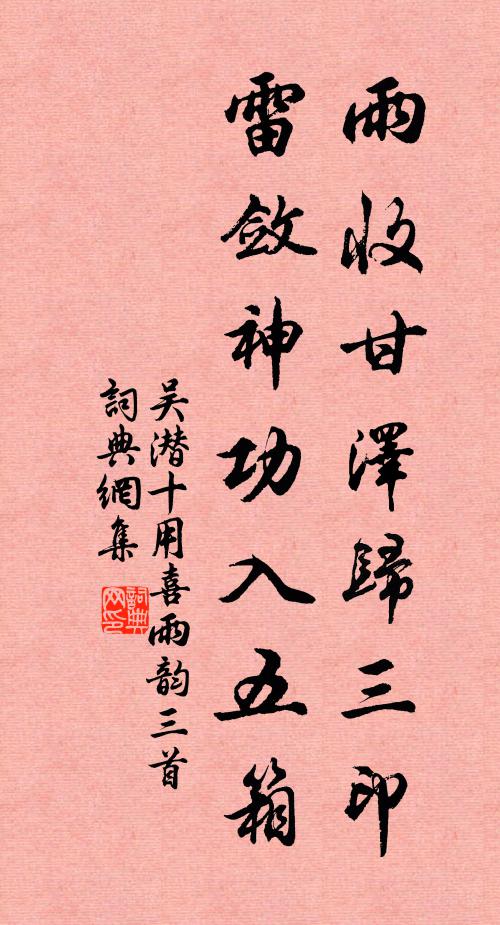 雨收甘澤歸三印
雷斂神功入五箱
吴潜十用喜雨韵三首
詞典網集
詞典
网印